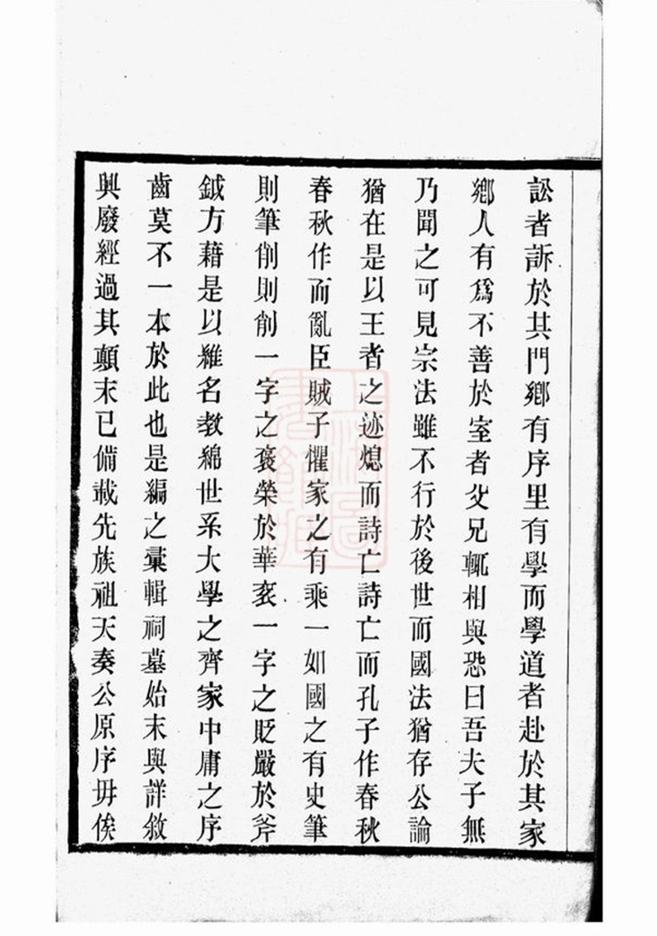 訟者訴於其門鄉有序里有學而學道者赴於其家
鄉人有爲不善於室者父兄輒相與恐曰吾夫子無
乃聞之可見宗法雖不行於後世而國法猶存公論
猶在是以王者之迹熄而詩亡詩亡而孔子作春秋
春秋作而亂臣賊子懼家之有乘一如國之有史筆
則筆削則削一字之褒榮於華衮一字之貶嚴於斧
鉞方藉是以維名教綿世系大學之齊家中庸之序
齒莫不一本於此也是編之彙輯祠墓始末與詳敘
興廢經過其顛末已備載先族祖天奏公原序毋俟